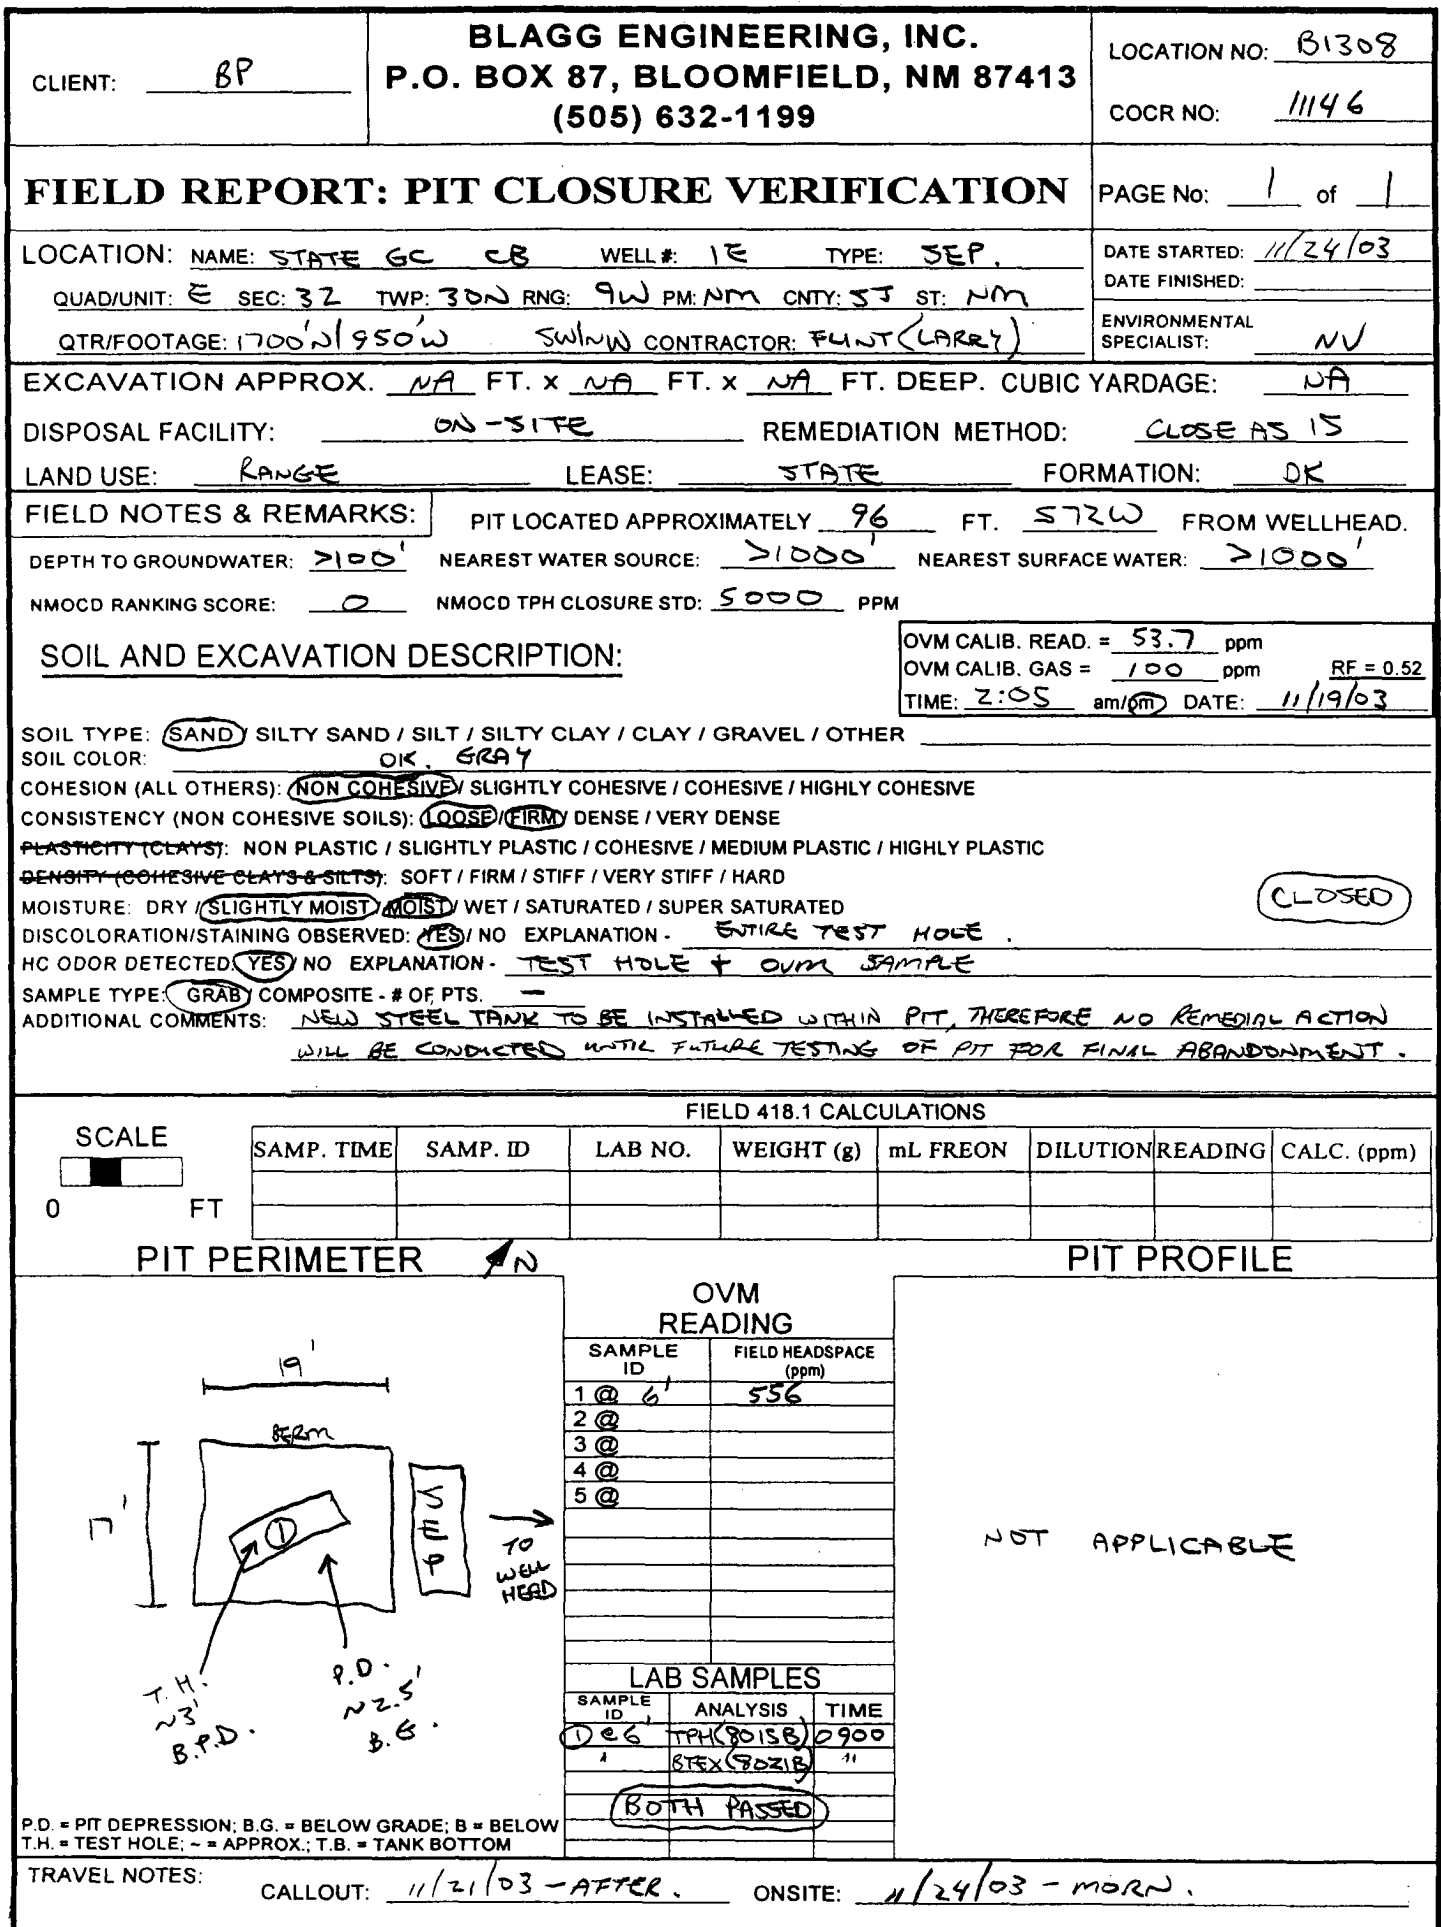 BLAGG ENGINEERING, INC.
P.O. BOX 87, BLOOMFIELD, NM 87413
(505) 632-1199
CLIENT: BP
LOCATION NO: B1308
COCR NO: 11146
FIELD REPORT: PIT CLOSURE VERIFICATION
PAGE No: 1 of 1
LOCATION: NAME: STATE GC CB WELL #: 1E TYPE: SEP.
QUAD/UNIT: E SEC: 32 TWP: 30N RNG: 9W PM: NM CNTY: SJ ST: NM
QTR/FOOTAGE: 1700'N/950'W SW/NW CONTRACTOR: FLINT (LARRY)
DATE STARTED: 11/24/03
DATE FINISHED:
ENVIRONMENTAL
SPECIALIST: NV
EXCAVATION APPROX. NA FT. x NA FT. x NA FT. DEEP. CUBIC YARDAGE: NA
DISPOSAL FACILITY: ON-SITE REMEDIATION METHOD: CLOSE AS IS
LAND USE: RANGE LEASE: STATE FORMATION: DK
FIELD NOTES & REMARKS: PIT LOCATED APPROXIMATELY 96 FT. S72W FROM WELLHEAD.
DEPTH TO GROUNDWATER: >100' NEAREST WATER SOURCE: >1000' NEAREST SURFACE WATER: >1000'
NMOCD RANKING SCORE: 0 NMOCD TPH CLOSURE STD: 5000 PPM
SOIL AND EXCAVATION DESCRIPTION:
OVM CALIB. READ. = 53.7 ppm
OVM CALIB. GAS = 100 ppm RF = 0.52
TIME: 2:05 am/pm DATE: 11/19/03
SOIL TYPE: SAND / SILTY SAND / SILT / SILTY CLAY / CLAY / GRAVEL / OTHER
SOIL COLOR: DK. GRAY
COHESION (ALL OTHERS): NON COHESIVE / SLIGHTLY COHESIVE / COHESIVE / HIGHLY COHESIVE
CONSISTENCY (NON COHESIVE SOILS): LOOSE / FIRM / DENSE / VERY DENSE
PLASTICITY (CLAYS): NON PLASTIC / SLIGHTLY PLASTIC / COHESIVE / MEDIUM PLASTIC / HIGHLY PLASTIC
DENSITY (COHESIVE CLAYS & SILTS): SOFT / FIRM / STIFF / VERY STIFF / HARD
MOISTURE: DRY / SLIGHTLY MOIST / MOIST / WET / SATURATED / SUPER SATURATED
CLOSED
DISCOLORATION/STAINING OBSERVED: YES / NO EXPLANATION - ENTIRE TEST HOLE.
HC ODOR DETECTED: YES / NO EXPLANATION - TEST HOLE + OVM SAMPLE
SAMPLE TYPE: GRAB / COMPOSITE - # OF PTS. —
ADDITIONAL COMMENTS: NEW STEEL TANK TO BE INSTALLED WITHIN PIT, THEREFORE NO REMEDIAL ACTION
WILL BE CONDUCTED UNTIL FUTURE TESTING OF PIT FOR FINAL ABANDONMENT.
FIELD 418.1 CALCULATIONS
SCALE
0 FT
SAMP. TIME SAMP. ID LAB NO. WEIGHT (g) mL FREON DILUTION READING CALC. (ppm)
PIT PERIMETER N
PIT PROFILE
OVM
READING
SAMPLE ID FIELD HEADSPACE (ppm)
1 @ 6' 556
2 @
3 @
4 @
5 @
19'
BERM
17'
1
SEP
TO
WELL
HEAD
T.H.
~3'
B.P.D.
P.D.
~2.5'
B.G.
NOT APPLICABLE
LAB SAMPLES
SAMPLE ID ANALYSIS TIME
1 @ 6' TPH (8015B) 0900
" BTEX (8021B) "
BOTH PASSED
P.D. = PIT DEPRESSION; B.G. = BELOW GRADE; B = BELOW
T.H. = TEST HOLE; ~ = APPROX.; T.B. = TANK BOTTOM
TRAVEL NOTES: CALLOUT: 11/21/03 - AFTER. ONSITE: 11/24/03 - MORN.